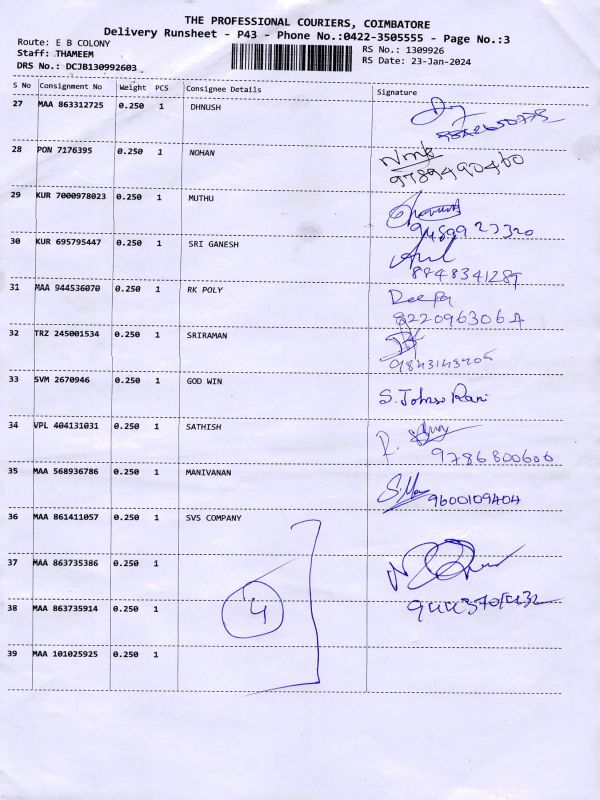 THE PROFESSIONAL COURIERS, COIMBATORE
Delivery Runsheet - P43 - Phone No.:0422-3505555 - Page No.:3
Route: E B COLONY RS No.: 1309926
Staff: THAMEEM RS Date: 23-Jan-2024
DRS No.: DCJB130992603
S No Consignment No Weight PCS Consignee Details Signature
27 MAA 863312725 0.250 1 DHNUSH
28 PON 7176395 0.250 1 NOHAN
9789490460
29 KUR 7000978023 0.250 1 MUTHU
9489923320
30 KUR 695795447 0.250 1 SRI GANESH
8848341289
31 MAA 944536070 0.250 1 RK POLY Deepa
8220963064
32 TRZ 245001534 0.250 1 SRIRAMAN
9843143205
33 SVM 2670946 0.250 1 GOD WIN S. Johnso Rani
34 VPL 404131031 0.250 1 SATHISH
9786800606
35 MAA 568936786 0.250 1 MANIVANAN
9600109404
36 MAA 861411057 0.250 1 SVS COMPANY
37 MAA 863735386 0.250 1
38 MAA 863735914 0.250 1 4
39 MAA 101025925 0.250 1